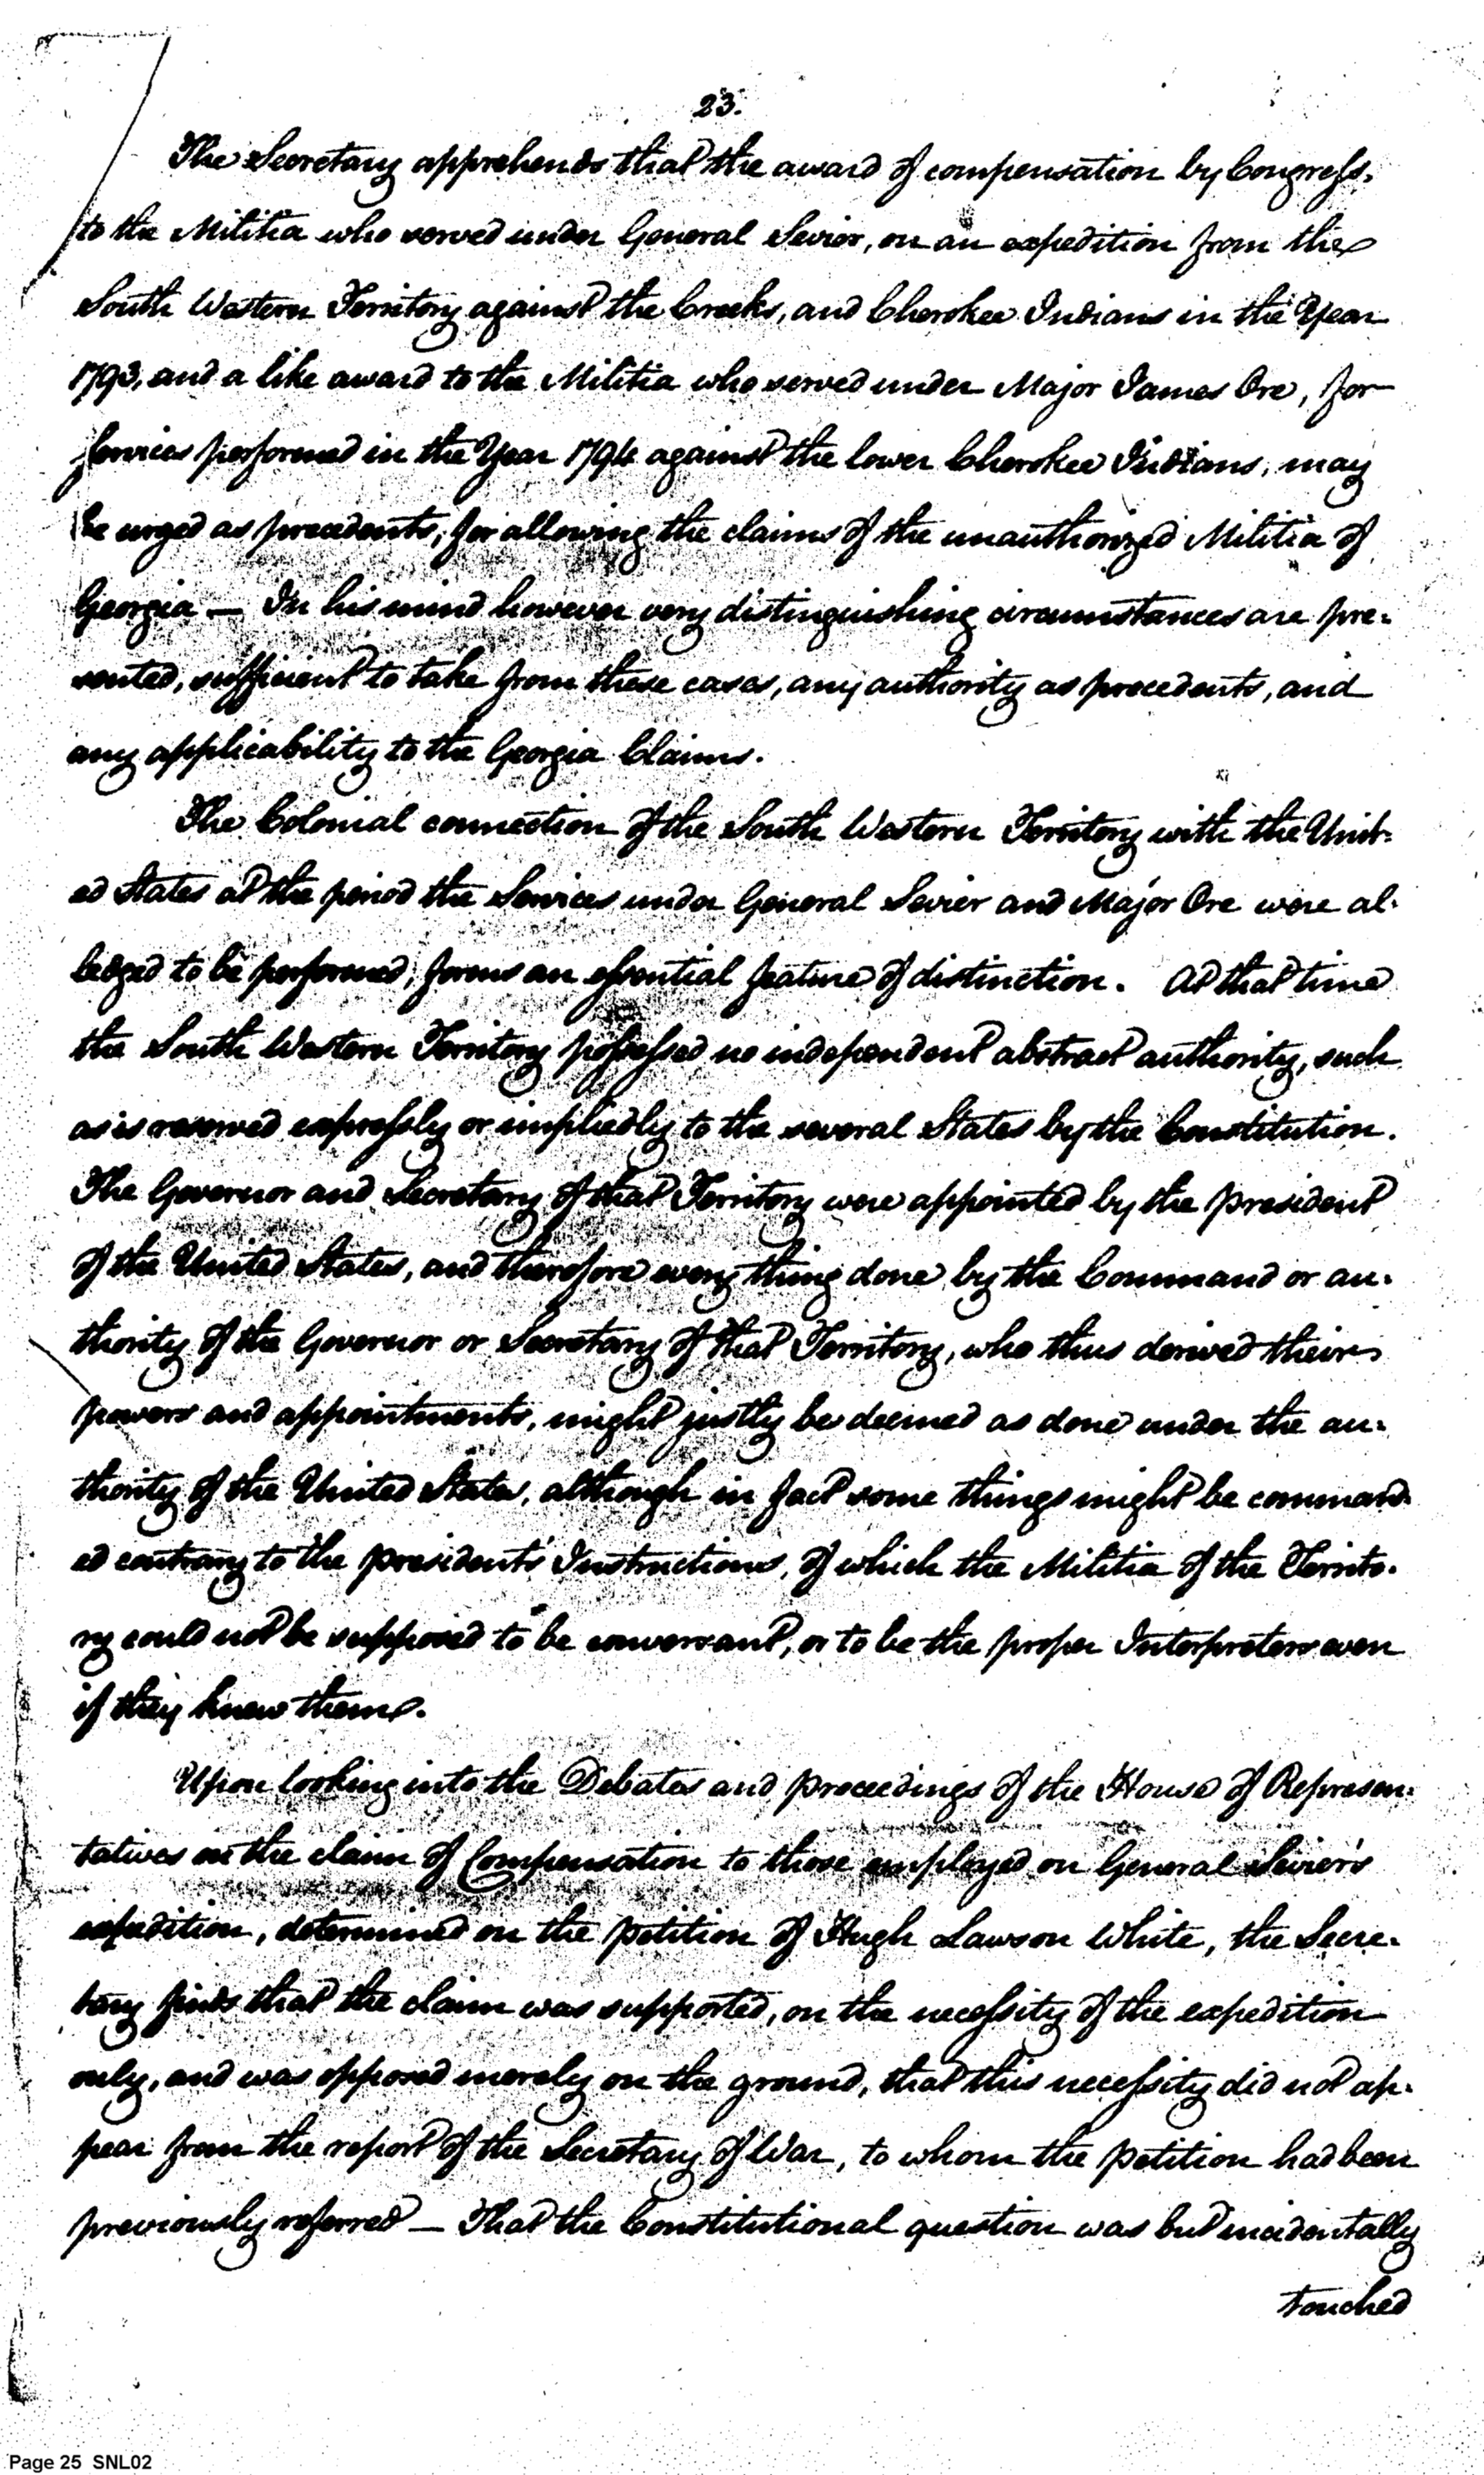 23.
The Secretary apprehends that the award of compensation by Congress.
to the Militia who served under General Sevier, on an expedition from the
South Western Territory against the Creeks, and Cherokee Indians in the Year
1793, and a like award to the Militia who served under Major James Ore, for
services performed in the Year 1794 against the lower Cherokee Indians, may
be urged as precedents, for allowing the claims of the unauthorized Militia of
Georgia — In his mind however very distinguishing circumstances are pre-
sented, sufficient to take from these cases, any authority as precedents, and
any applicability to the Georgia Claims.
The Colonial connection of the South Western Territory with the Unit-
ed States at the period the Services under General Sevier and Major Ore were al-
ledged to be performed, forms an essential feature of distinction. At that time
the South Western Territory possessed no independent abstract authority, such
as is reserved expressly or impliedly to the several States by the Constitution.
The Governor and Secretary of that Territory were appointed by the president
of the United States, and therefore every thing done by the Command or au-
thority of the Governor or Secretary of that Territory, who thus derived their
powers and appointments, might justly be deemed as done under the au-
thority of the United States, although in fact some things might be command-
ed contrary to the presidents' Instructions, of which the Militia of the Territo-
ry could not be supposed to be conversant, or to be the proper Interpreters even
if they knew them.
Upon looking into the Debates and proceedings of the House of Represen-
tatives on the claim of Compensation to those employed on General Sevier's
expedition, determined on the petition of Hugh Lawson White, the Secre-
tary finds that the claim was supported, on the necessity of the expedition
only, and was opposed merely on the ground, that this necessity did not ap-
pear from the report of the Secretary of War, to whom the petition had been
previously referred — That the Constitutional question was but incidentally
touched
Page 25 SNL02